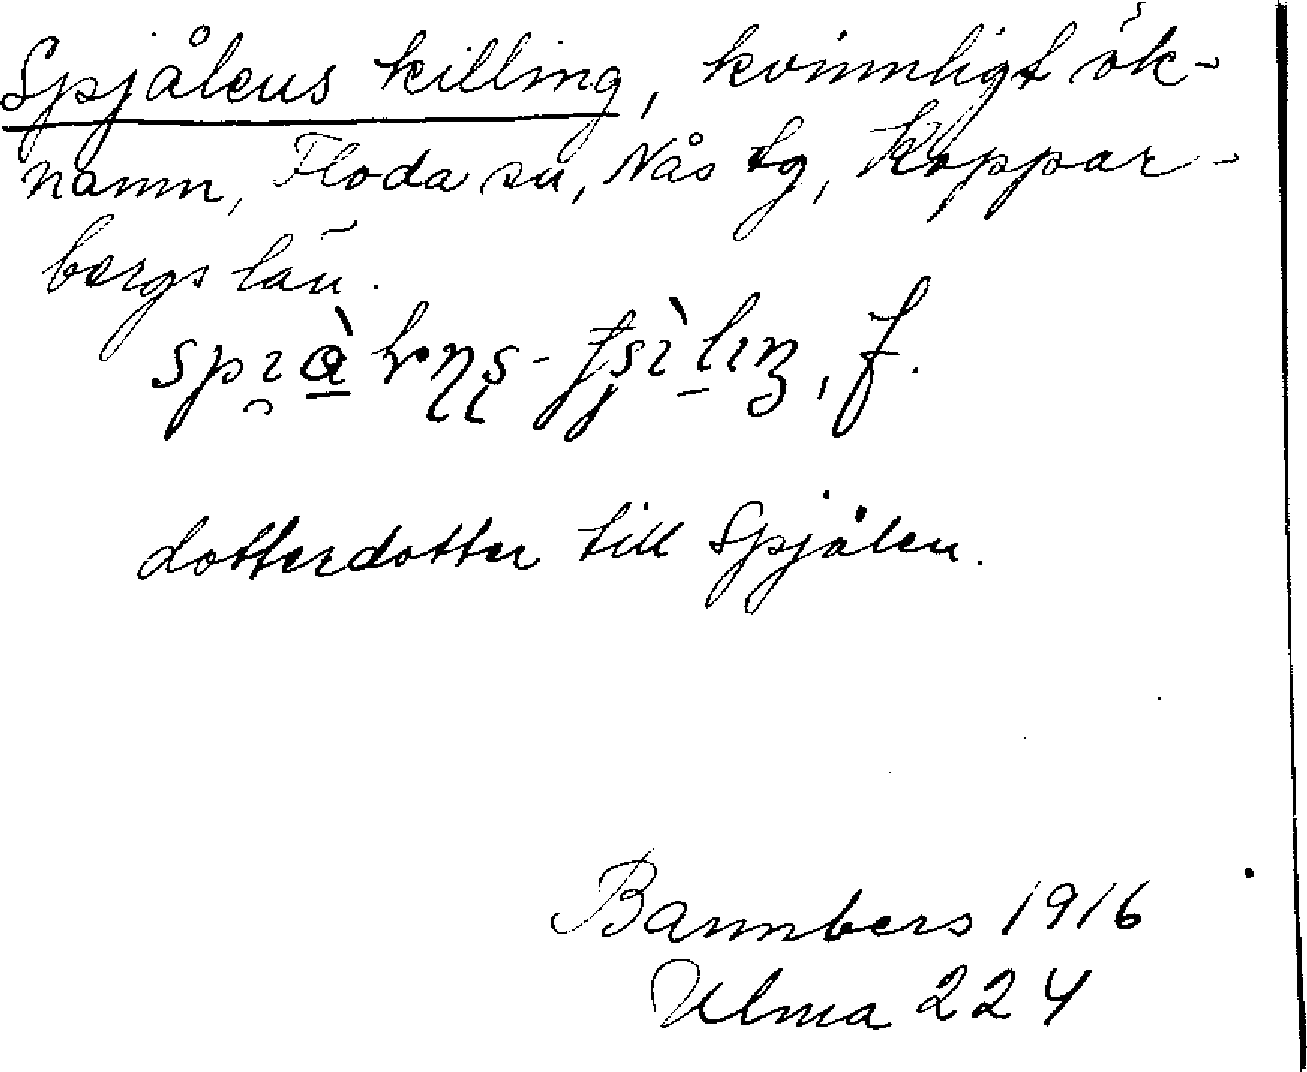 Spjålens killing, kvinnligt ök-
namn, Floda sn, Nås tg, Koppar-
bergs län.
f.
dotterdotter till Spjålen.
Bannbers 1916
Ulma 224